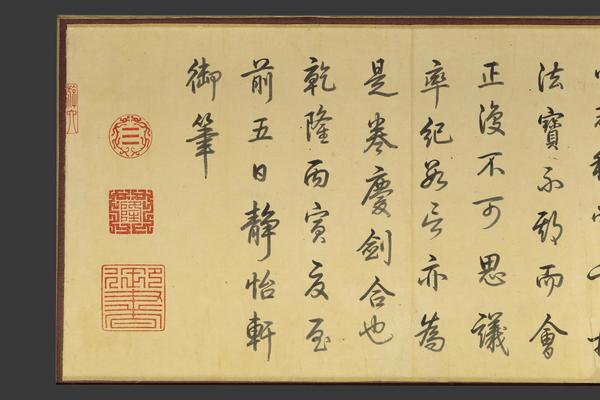 法寶不期而會
正復不可思議
率紀數言亦為
是卷慶劍合也
乾隆丙寅夏至
前五日靜怡軒
御筆
隆